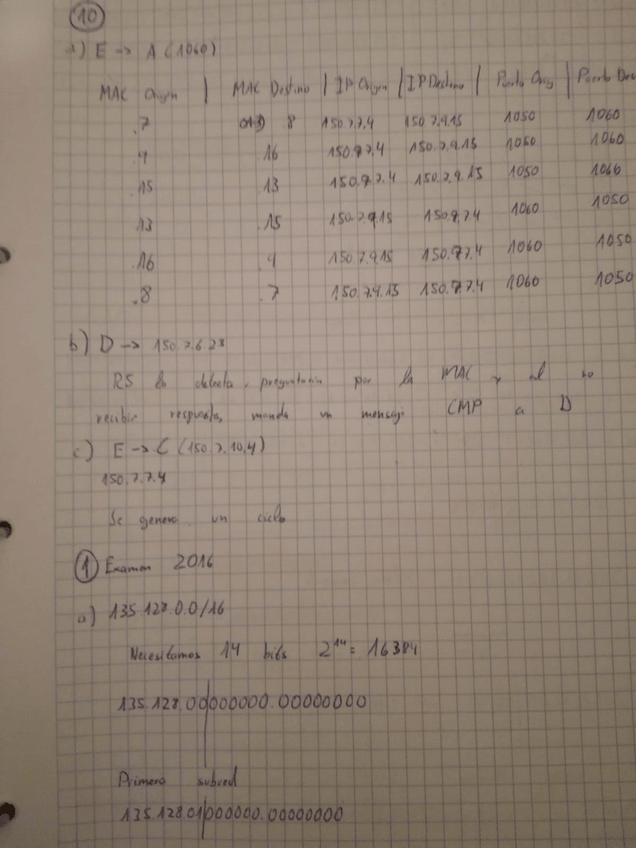 10
a) E → A (1060)
MAC Origen | MAC Destino | IP Origen | IP Destino | Puerto Orig | Puerto Des
.7 8 150.7.7.4 150.7.9.15 1050 1060
.9 16 150.7.7.4 150.7.9.15 1050 1060
.15 13 150.7.7.4 150.7.9.15 1050 1060
.13 .15 150.7.9.15 150.7.7.4 1060 1050
.16 .9 150.7.9.15 150.7.7.4 1060 1050
.8 .7 150.7.9.15 150.7.7.4 1060 1050
b) D → 150.7.6.28
R5 lo detecta, preguntaría por la MAC y al no
recibir respuesta, manda un mensaje ICMP a D
c) E → C (150.7.10.4)
150.7.7.4
Se genera un ciclo
1 Examen 2016
a) 135.128.0.0/16
Necesitamos 14 bits 2^14 = 16384
135.128.00|000000.00000000
Primera subred
135.128.01|000000.00000000